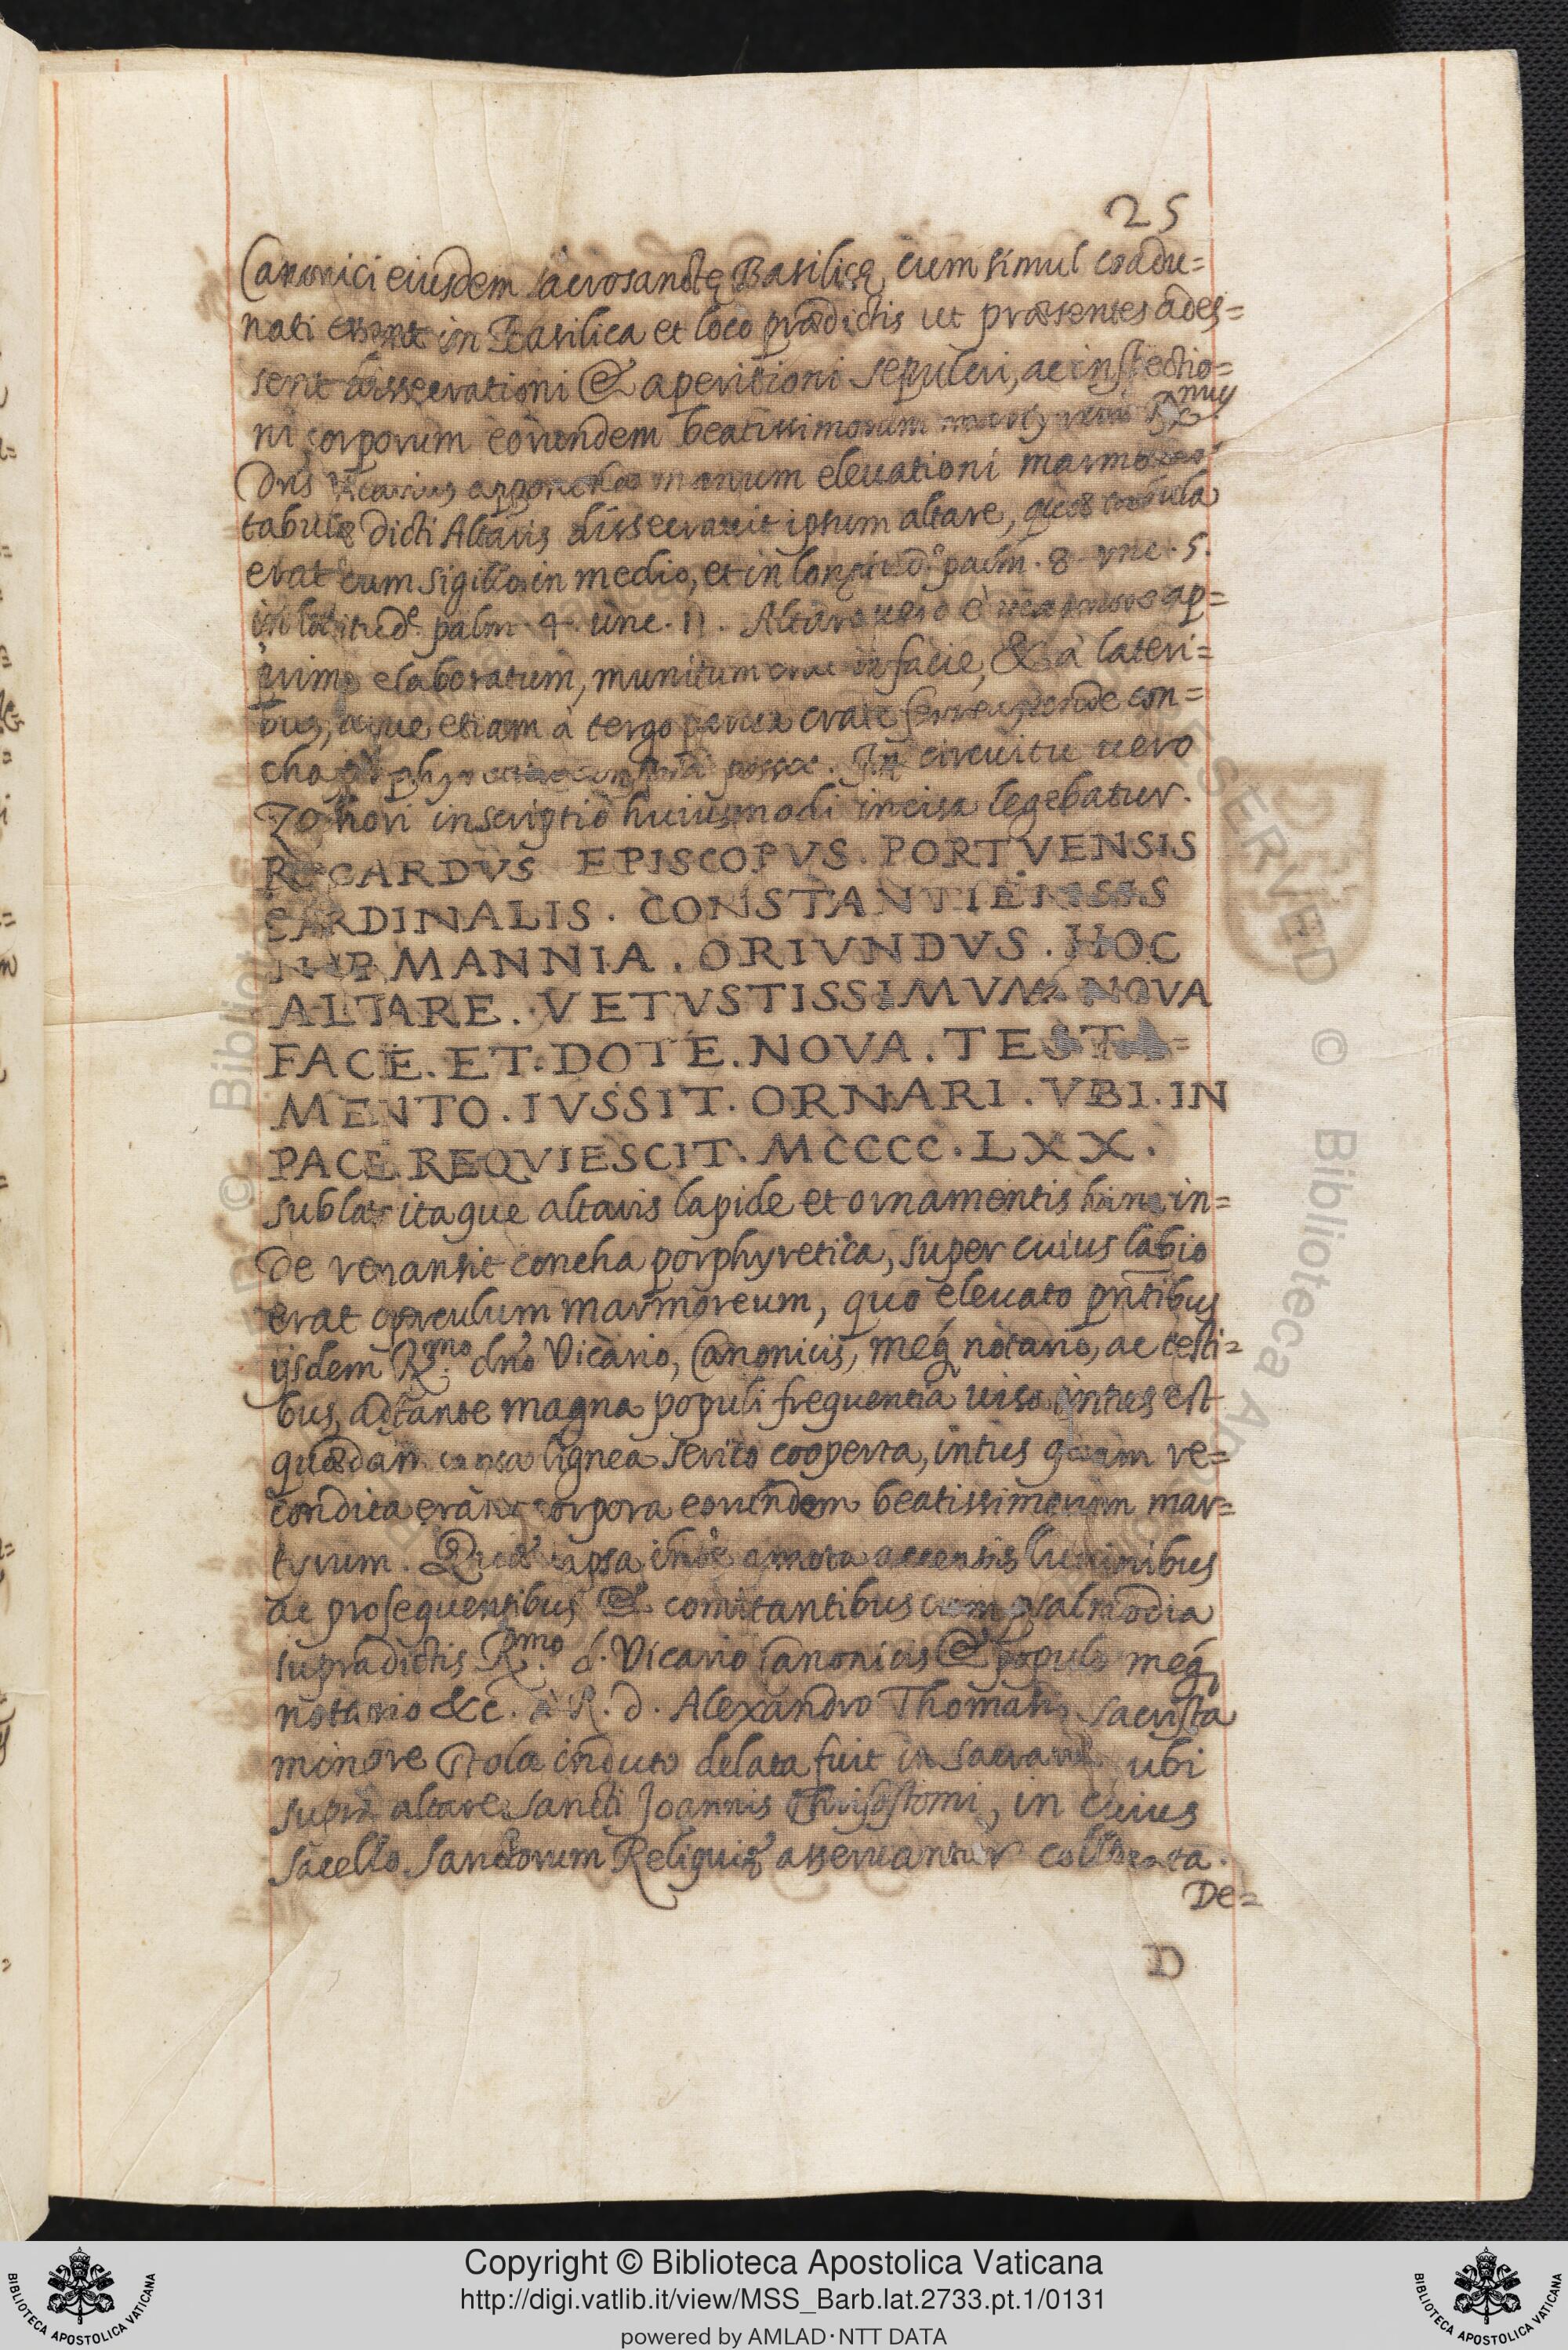 25
Canonici eiusdem sacrosanctę Basilicę, cum simul coadu=
nati essent in Basilica et loco prædictis ut præsentes ades=
sent disserrationi & aperitioni sepulcri, ac inspectio=
ni corporum eorundem beatissimorum martyrum R.mus
Dns Vicarius apponendo manum eleuationi marmoreæ
tabulæ dicti Altaris disserauit ipsum altare, quæ tabula
erat cum sigillo in medio, et in longitud.e palm. 8 unc. 5.
in latitud.e palm 4. unc. 11. Altare uero è marmore ap=
prime elaboratum, munitum erat in facie, & à lateri=
bus, atque etiam à tergo parua crate ferrea, unde con=
cha porphyretica conspici posset. In circuitu uero
Zophori inscriptio huiusmodi incisa legebatur.
RICCARDVS EPISCOPVS. PORTVENSIS
CARDINALIS. CONSTANTIENSIS
NORMANNIA. ORIVNDVS. HOC
ALTARE. VETVSTISSIMVM. NOVA
FACE. ET. DOTE. NOVA. TESTA=
MENTO. IVSSIT. ORNARI. VBI. IN
PACE REQVIESCIT. MCCCC. LXX.
Sublato itaque altaris lapide et ornamentis hinc in=
de remansit concha porphyretica, super cuius labio
erat operculum marmoreum, quo eleuato pntibus
ijsdem R.mo dno Vicario, Canonicis, meq notario, ac testi=
bus, adstante magna populi frequentia uisa intus est
quædam capsa lignea serico cooperta, intus quam re=
condita erant corpora eorundem beatissimorum mar=
tyrum. Quæ capsa inde amota accensis luminibus
ac prosequentibus & comitantibus cum psalmodia
supradictis R.mo d. Vicario Canonicis & populo meq
notario &c. à R. d. Alexandro Thomasio Sacrista
minore stola induto delata fuit in sacrarium ubi
supra altare Sancti Joannis Chrisostomi, in cuius
sacello Sanctorum Reliquiæ asseruantur collocata.
De=
D
© Biblioteca Ap
RESERVED
© Bibliote
Copyright © Biblioteca Apostolica Vaticana
http://digi.vatlib.it/view/MSS_Barb.lat.2733.pt.1/0131
powered by AMLAD·NTT DATA
BIBLIOTECA APOSTOLICA VATICANA
BIBLIOTECA APOSTOLICA VATICANA